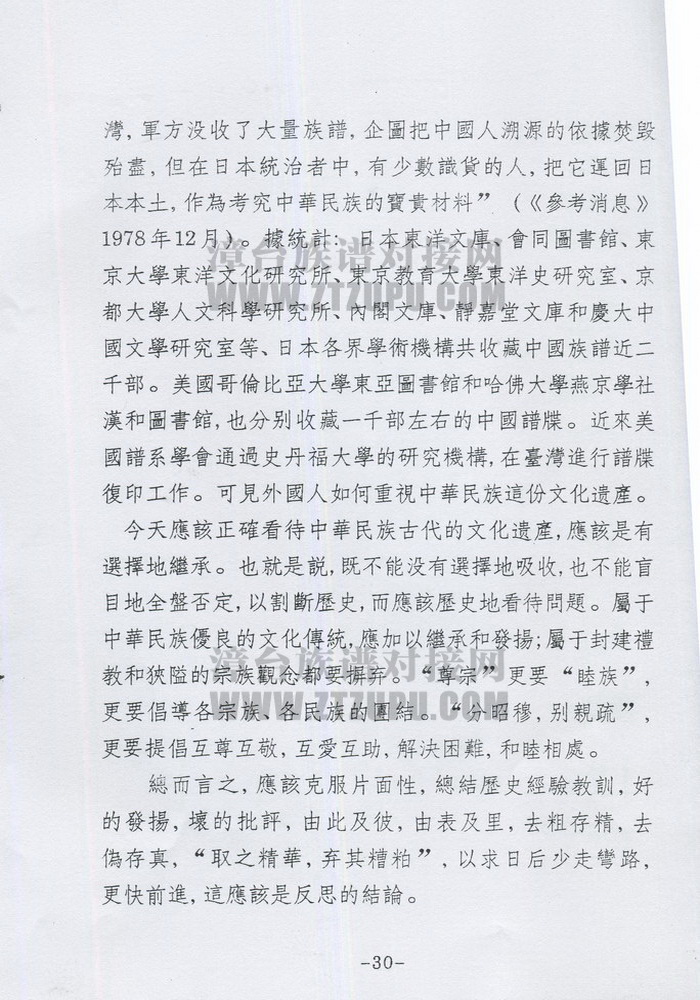 灣，軍方没收了大量族譜，企圖把中國人溯源的依據焚毀
殆盡，但在日本統治者中，有少數識貨的人，把它運回日
本本土，作為考究中華民族的寶貴材料”（《參考消息》
1978年12月）。據統計：日本東洋文庫、會同圖書館、東
漳台族谱对接网
WWW.ZTZUPU.COM
京大學東洋文化研究所、東京教育大學東洋史研究室、京
都大學人文科學研究所、內閣文庫、靜嘉堂文庫和慶大中
國文學研究室等、日本各界學術機構共收藏中國族譜近二
千部。美國哥倫比亞大學東亞圖書館和哈佛大學燕京學社
漢和圖書館，也分别收藏一千部左右的中國譜牒。近來美
國譜系學會通過史丹福大學的研究機構，在臺灣進行譜牒
復印工作。可見外國人如何重視中華民族這份文化遺產。
今天應該正確看待中華民族古代的文化遺產，應該是有
選擇地繼承。也就是説，既不能没有選擇地吸收，也不能盲
目地全盤否定，以割斷歷史，而應該歷史地看待問題。屬于
中華民族優良的文化傳統，應加以繼承和發揚；屬于封建禮
漳台族谱对接网
WWW.ZTZUPU.COM
教和狹隘的宗族觀念都要摒弃。“尊宗”更要“睦族”，
更要倡導各宗族、各民族的團結。“分昭穆，别親疏”，
更要提倡互尊互敬，互愛互助，解決困難，和睦相處。
總而言之，應該克服片面性，總結歷史經驗教訓，好
的發揚，壞的批評，由此及彼，由表及里，去粗存精，去
偽存真，“取之精華，弃其糟粕”，以求日后少走彎路，
更快前進，這應該是反思的結論。
-30-